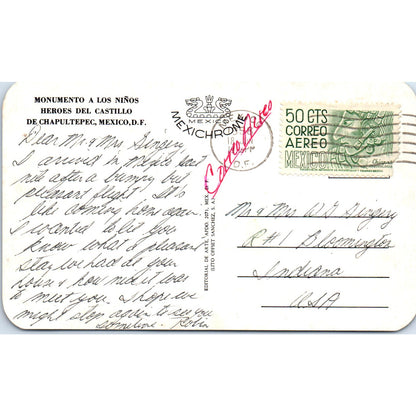 MONUMENTO A LOS NIÑOS
HEROES DEL CASTILLO
DE CHAPULTEPEC, MEXICO, D.F.
MEXICO
MEXICHROME
D.F.
Correo Aereo
50 CTS
CORREO
AEREO
MEXICO
Dear Mr & Mrs
I arrived in Mexico last
nite after a bumpy but
pleasant flight! It is
like coming home again.
I wanted to let you
know what a pleasant
stay we had at your
house & how nice it was
to meet you. I hope we
might stop again to see you
sometime. Robin
EDITORIAL DE ARTE, APDO. 2071, MEX.
(LITO OFFSET SANCHEZ, S.A.)
Mr & Mrs
R#1 Bloomington
Indiana
USA